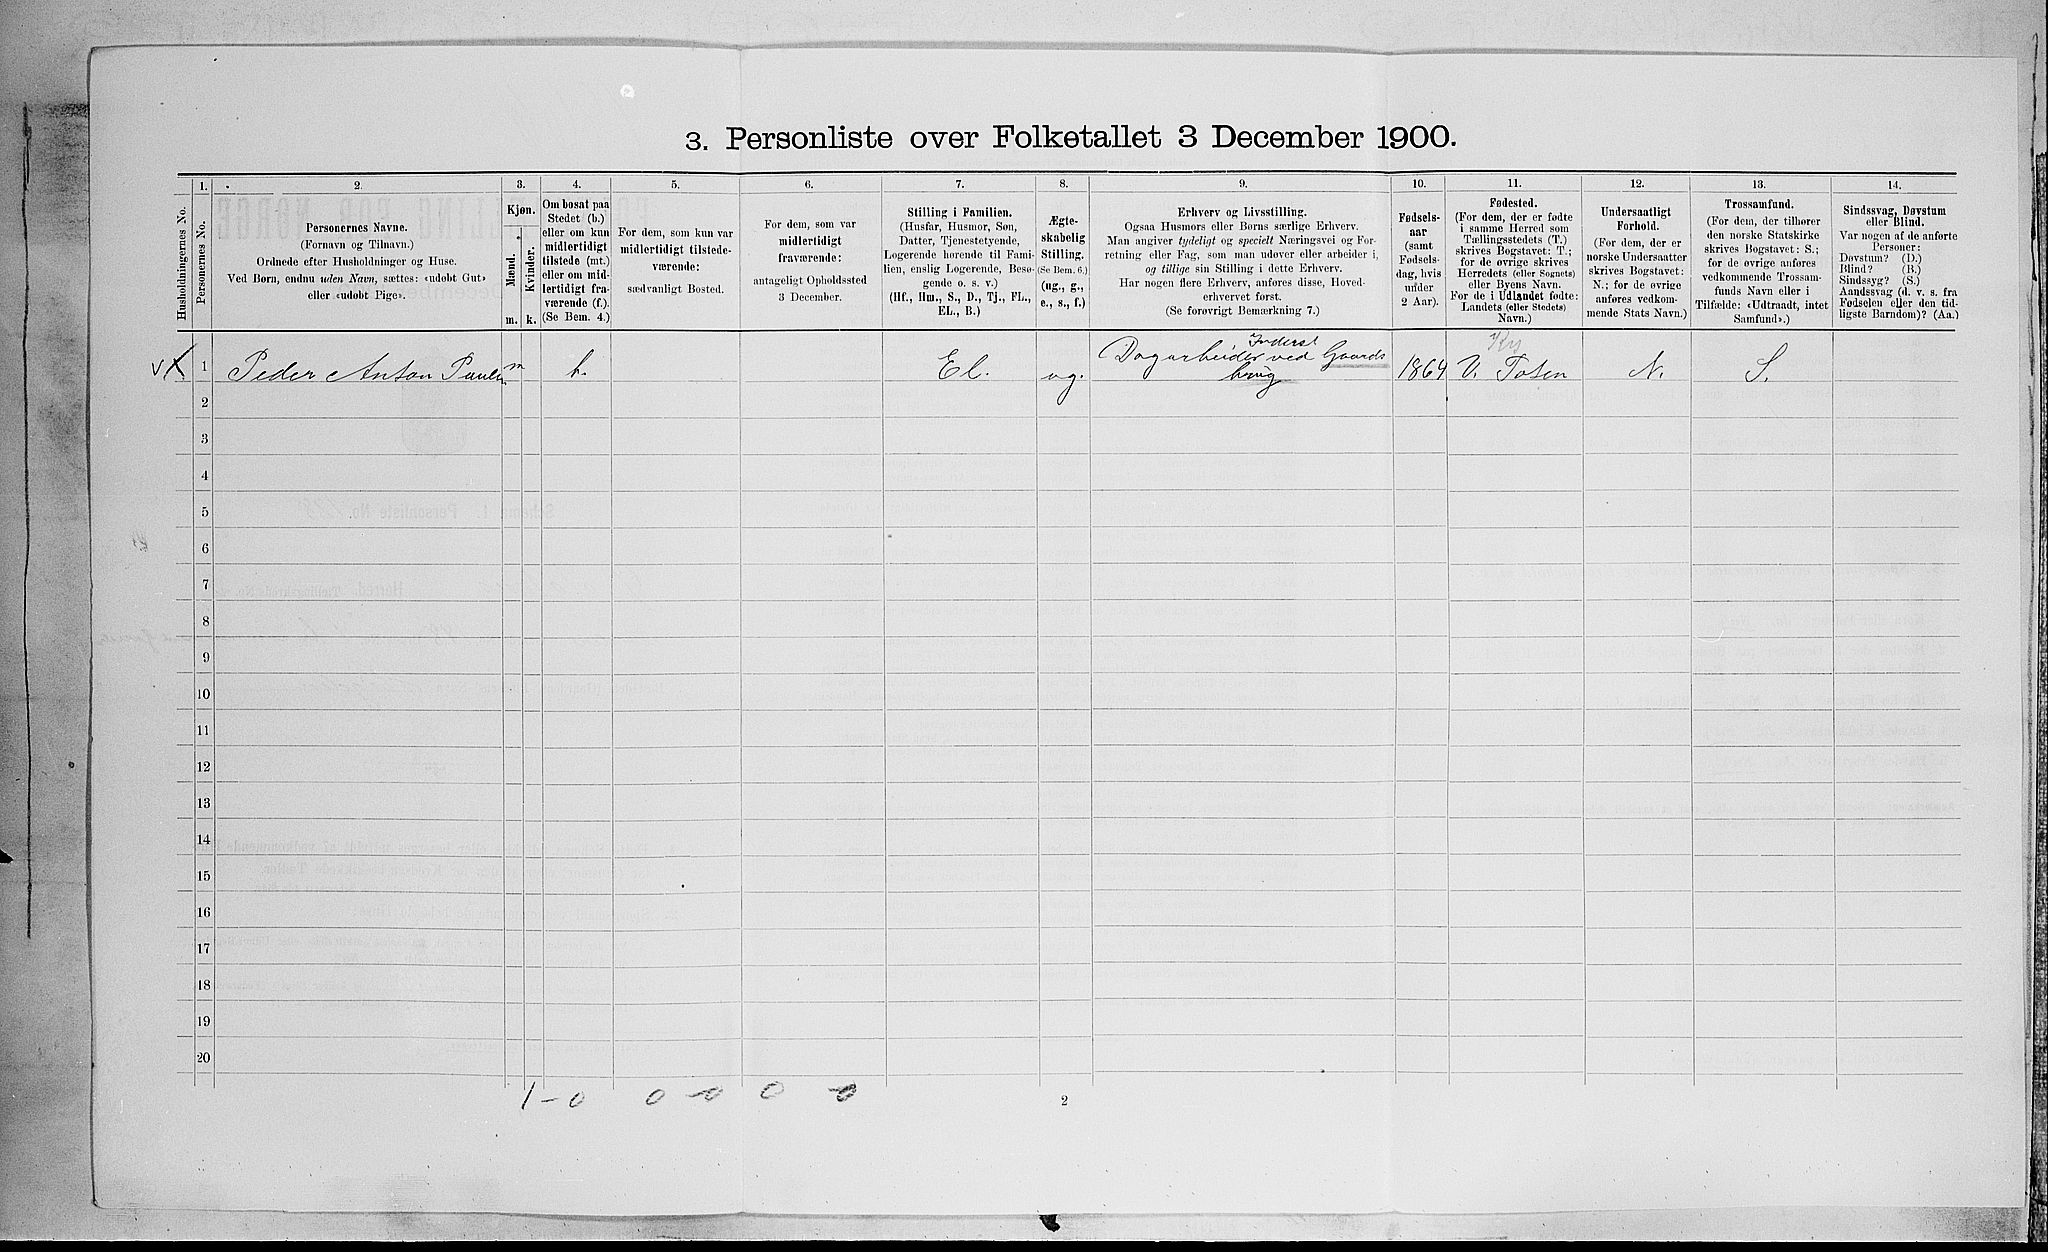 3. Personliste over Folketallet 3 December 1900.
Husholdningernes No.
1.
Personernes No.
2.
Personernes Navne.
(Fornavn og Tilnavn.)
Ordnede efter Husholdninger og Huse.
Ved Børn, endnu uden Navn, sættes: «udøbt Gut»
eller «udøbt Pige».
3.
Kjøn.
Mænd.
Kvinder.
m. k.
4.
Om bosat paa
Stedet (b.)
eller om kun
midlertidigt
tilstede (mt.)
eller om mid-
lertidigt fra-
værende (f.).
(Se Bem. 4.)
5.
For dem, som kun var
midlertidigt tilstede-
værende:
sædvanligt Bosted.
6.
For dem, som var
midlertidigt
fraværende:
antageligt Opholdssted
3 December.
7.
Stilling i Familien.
(Husfar, Husmor, Søn,
Datter, Tjenestetyende,
Logerende hørende til Fami-
lien, enslig Logerende, Besø-
gende o. s. v.)
(Hf., Hm., S., D., Tj., FL.,
EL., B.)
8.
Ægte-
skabelig
Stilling.
(Se Bem. 6.)
(ug., g.,
e., s., f.)
9.
Erhverv og Livsstilling.
Ogsaa Husmors eller Børns særlige Erhverv.
Man angiver tydeligt og specielt Næringsvei og For-
retning eller Fag, som man udøver eller arbeider i,
og tillige sin Stilling i dette Erhverv.
Har nogen flere Erhverv, anføres disse, Hoved-
erhvervet først.
(Se forøvrigt Bemærkning 7.)
10.
Fødsels-
aar
(samt
Fødsels-
dag, hvis
under
2 Aar).
11.
Fødested.
(For dem, der er fødte
i samme Herred som
Tællingsstedets (T.)
skrives Bogstavet: T.;
for de øvrige skrives
Herredets (eller Sognets)
eller Byens Navn.
For de i Udlandet fødte:
Landets (eller Stedets)
Navn.)
12.
Undersaatligt
Forhold.
(For dem, der er
norske Undersaatter
skrives Bogstavet:
N.; for de øvrige
anføres vedkom-
mende Stats Navn.)
13.
Trossamfund.
(For dem, der tilhører
den norske Statskirke
skrives Bogstavet: S.;
for de øvrige anføres
vedkommende Trossam-
funds Navn eller i
Tilfælde: «Udtraadt, intet
Samfund».)
14.
Sindssvag, Døvstum
eller Blind.
Var nogen af de anførte
Personer:
Døvstum? (D.)
Blind? (B.)
Sindssyg? (S.)
Aandssvag (d. v. s. fra
Fødselen eller den tid-
ligste Barndom)? (Aa.)
Inderst
1 Peder Anton Paulsen m b. El. ug. Dagarbeider ved Gaards 1864 V. Toten N. S.
brug
2
3
4
5
6
7
8
9
10
11
12
13
14
15
16
17
18
19
20
1-0 0-0 0 0
2